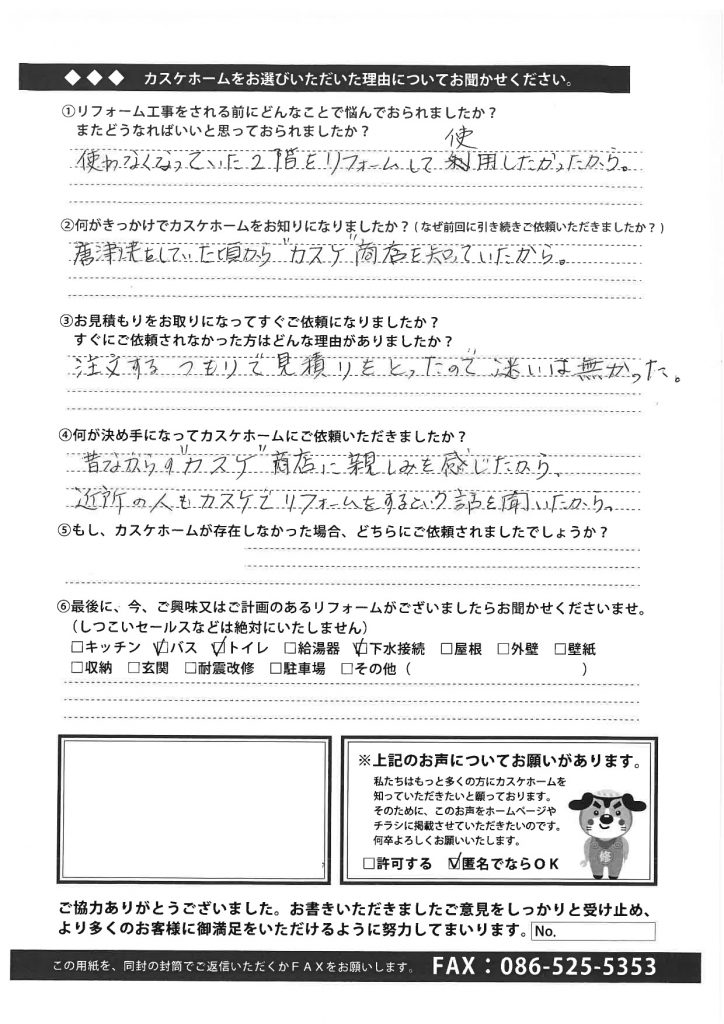 ◆◆◆ カスケホームをお選びいただいた理由についてお聞かせください。
①リフォーム工事をされる前にどんなことで悩んでおられましたか？
またどうなればいいと思っておられましたか？
使
使わなくなっていた2階をリフォームして利用したかったから。
②何がきっかけでカスケホームをお知りになりましたか？(なぜ前回に引き続きご依頼いただきましたか？)
唐津焼をしていた頃から"カスケ"商店を知っていたから。
③お見積もりをお取りになってすぐご依頼になりましたか？
すぐにご依頼されなかった方はどんな理由がありましたか？
注文するつもりで見積りをとったので迷いは無かった。
④何が決め手になってカスケホームにご依頼いただきましたか？
昔ながらの"カスケ"商店に親しみを感じたから、
近所の人もカスケでリフォームをするという話を聞いたから。
⑤もし、カスケホームが存在しなかった場合、どちらにご依頼されましたでしょうか？
⑥最後に、今、ご興味又はご計画のあるリフォームがございましたらお聞かせくださいませ。
（しつこいセールスなどは絶対にいたしません）
□キッチン ☑バス ☑トイレ □給湯器 ☑下水接続 □屋根 □外壁 □壁紙
□収納 □玄関 □耐震改修 □駐車場 □その他（ ）
※上記のお声についてお願いがあります。
私たちはもっと多くの方にカスケホームを
知っていただきたいと願っております。
そのために、このお声をホームページや
チラシに掲載させていただきたいのです。
何卒よろしくお願いいたします。
修
□許可する ☑匿名でならOK
ご協力ありがとうございました。お書きいただきましたご意見をしっかりと受け止め、
より多くのお客様に御満足をいただけるように努力してまいります。 No.
この用紙を、同封の封筒でご返信いただくかFAXをお願いします。 FAX：086-525-5353